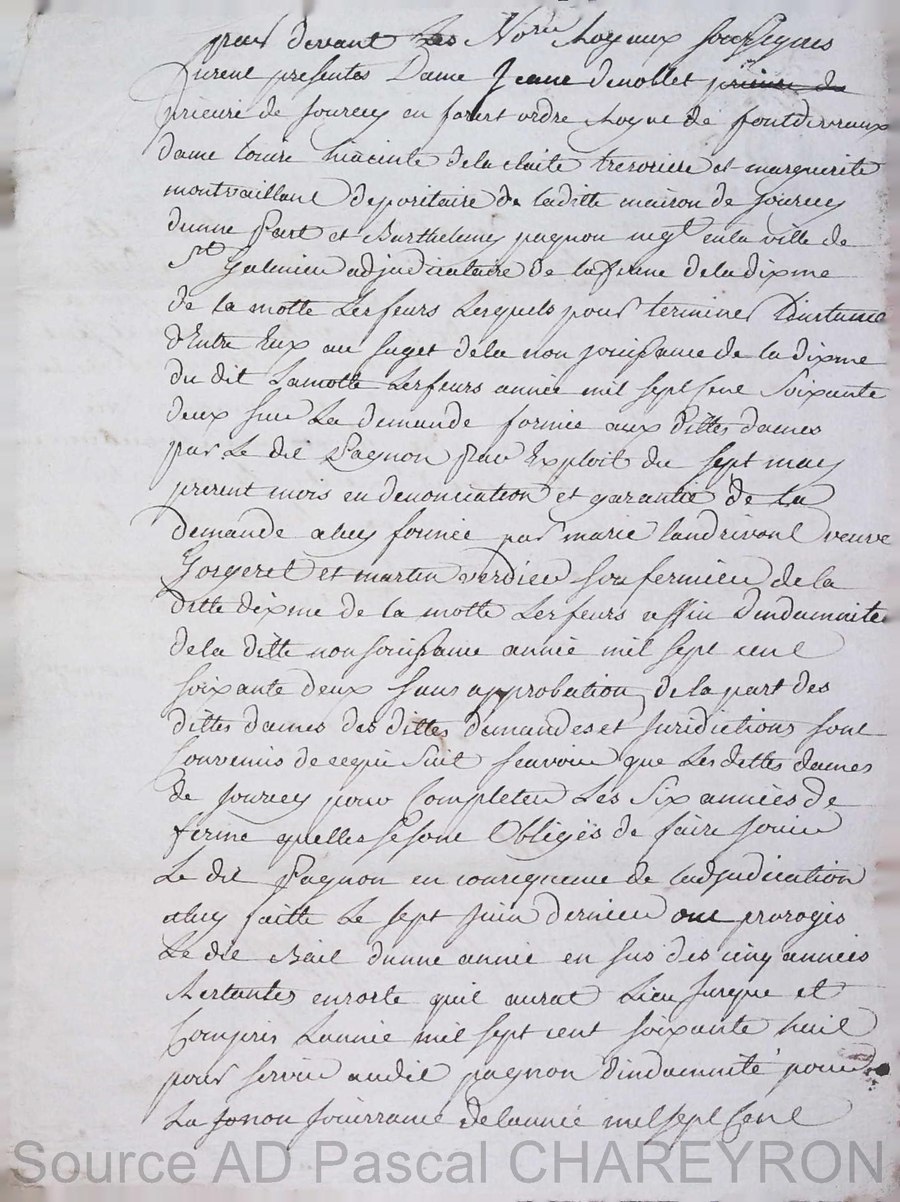 par devant Les No.res Royaux soussignes
Furent presentes Dame Jeanne denoblet prieure de
prieure de Jourcey en forest ordre Royal de fontdevraux
dame Louise hiacinte de la tresoriere et marguerite
montvaillant depositaire de laditte maison de Jourcey
dunne Part et Barthelemy pagnon neg.t en la ville de
S.t Galmier adjudicataire de la ferme de la dixme
de la motte Lesfeurs Lesquels pour terminer Linstance
dEntre Eux au suget de la non jouissance de la dixme
du dit Lamotte Lesfeurs année mil sept Cent Soixante
deux sur La demande formée aux dittes dames
par Le dit Pagnon Par Exploit du sept may
present mois en denonciation et garantie de la
demande a luy formée par marie landrivont veuve
Gorgeret et martin verdier soufermier de la
ditte dixme de la motte Lesfeurs affin dindamnité
de la ditte non jouissance année mil sept cent
soixante deux sans approbation de la part des
dittes dames des dittes demandes et juridictions sont
Convenus de ce qui Suit scavoir que Les dittes dames
de Jourcey pour Completer Les Six années de
ferme quelles se sont Obligés de faire jouir
Le dit Pagnon en consequence de ladjudication
a luy faitte Le sept juin dernier ont prorogés
Le dit Bail dunne année en sus des cinq années
Restantes ensorte quil aurat Lieu jusque et
Compris Lannée mil sept cent soixante huit
pour servir audit pagnon dindamnité pour
La non jouissance de lannée mil sept Cent
Source AD Pascal CHAREYRON